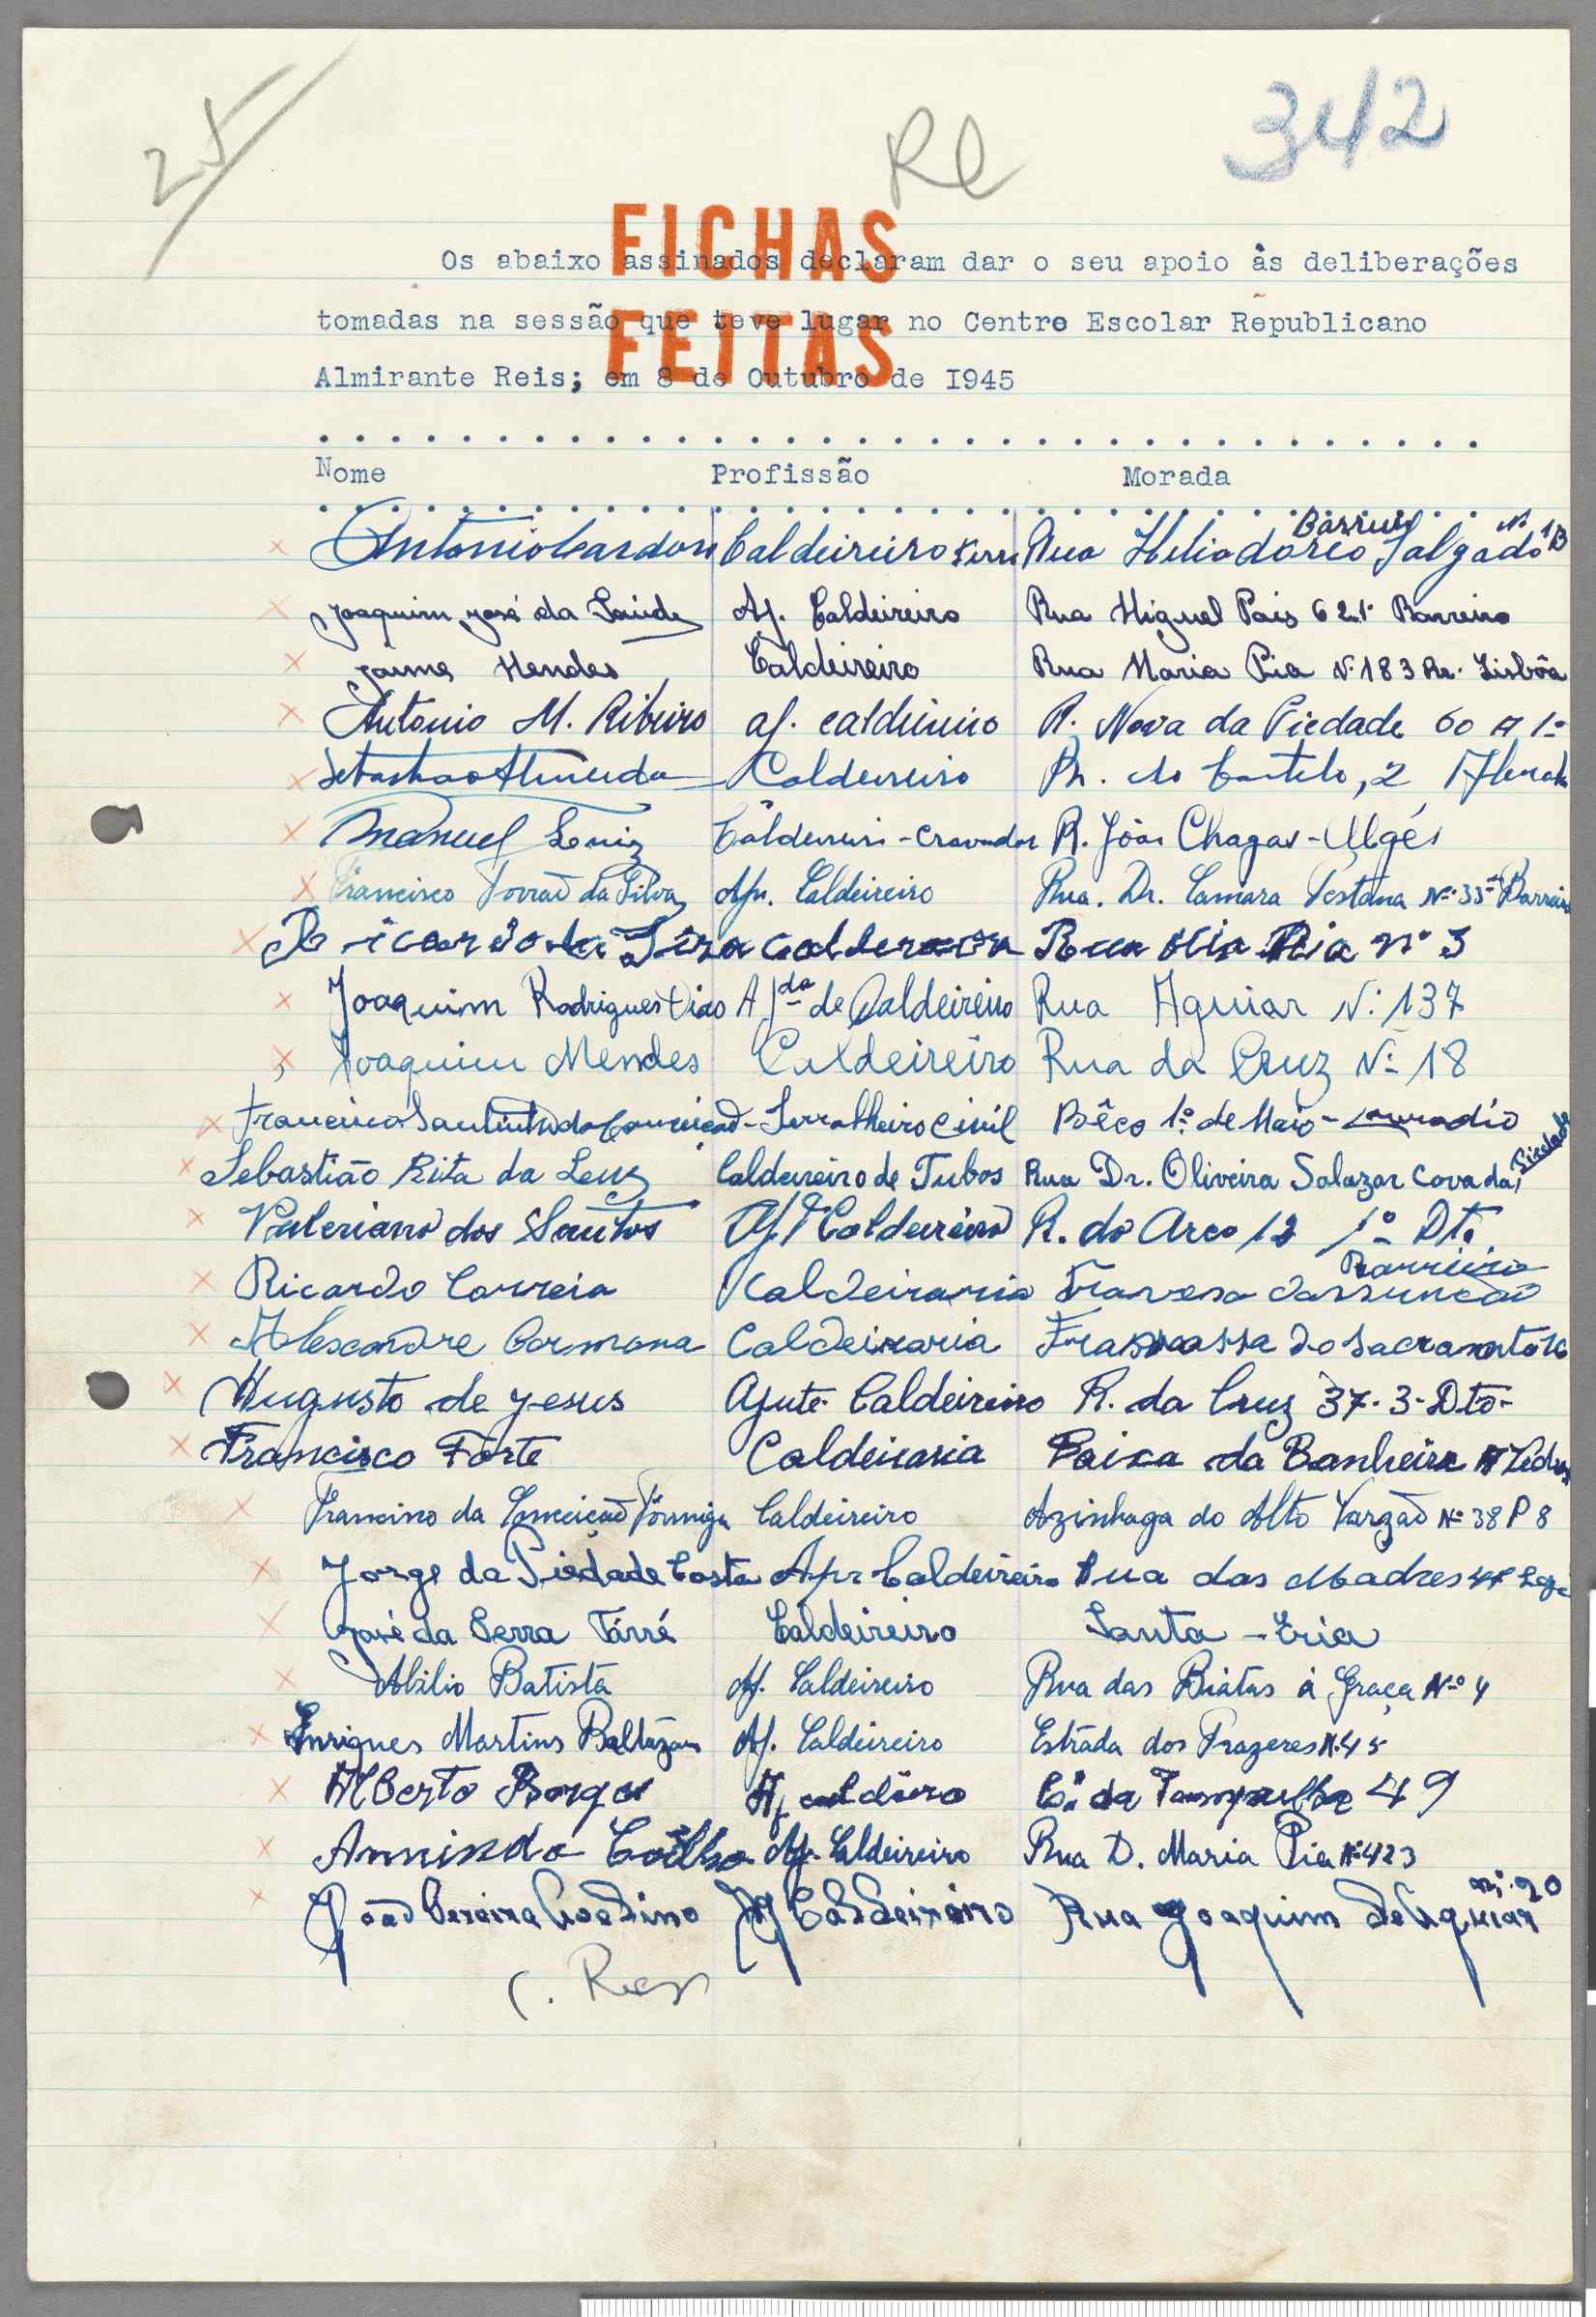 25
Re
342
FICHAS
FEITAS
Os abaixo assinados declaram dar o seu apoio às deliberações
tomadas na sessão que teve lugar no Centro Escolar Republicano
Almirante Reis; em 8 de Outubro de I945
Nome Profissão Morada
Antonio Cardoso Caldeireiro Ferro Rua Heliodoro Salgado Nº 1B Barreiro
Joaquim José da Saúde Aj. Caldeireiro Rua Miguel Pais 62 1º Barreiro
Jaime Mendes Caldeireiro Rua Maria Pia Nº 183 Rc. Lisbôa
Antonio M. Ribeiro aj. caldeireiro R. Nova da Piedade 60 A 1º
Sebastiao Almeida Caldeireiro R. do Castelo, 2 Almada
Manuel Luiz Caldeireiro - Cravador R. João Chagas - Algés
Francisco Torrão da Silva Apr. Caldeireiro Rua. Dr. Camara Pestana Nº 33 Barreiro
Ricardo da Rua Nº 3
Joaquim Rodrigues Dias Ajda de Caldeireiro Rua Aguiar Nº 137
Joaquim Mendes Caldeireiro Rua da Cruz Nº 18
Francisco da Conceição - Serralheiro Civil Bêco 1º de Maio - Lavradio
Sebastião Rita da Luz Caldeireiro de Tubos Rua Dr. Oliveira Salazar Cova da Piedade
Valeriano dos Santos Ajte Caldeireiro R. do Arco 12 1º Dto
Ricardo Correia Caldeiraria Travessa dassunção Barreiro
Alesandre Carmona Caldeiraria do Sacramento 16
Augusto de Jesus Ajute Caldeireiro R. da Cruz 37-3-Dto-
Francisco Forte Caldeiraria Baixa da Banheira
Francisco da Conceição Formiga Caldeireiro Azinhaga do Alto Varzão Nº 38 P 8
Jorge da Piedade Costa Apr Caldeireiro Rua das Madres 44
José da Serra Tárré Caldeireiro Santa - Eria
Abilio Batista Aj. Caldeireiro Rua das Biatas á Graça Nº 4
Enriques Martins Baltazar Aj. Caldeireiro Estrada dos Prazeres Nº 45
Alberto Borges Aj Cª da Tampulha 49
Armindo Coelho Aj. Caldeireiro Rua D. Maria Pia Nº 423
João Pereira Aj Caldeireiro Rua Joaquim de Aguiar nº 90